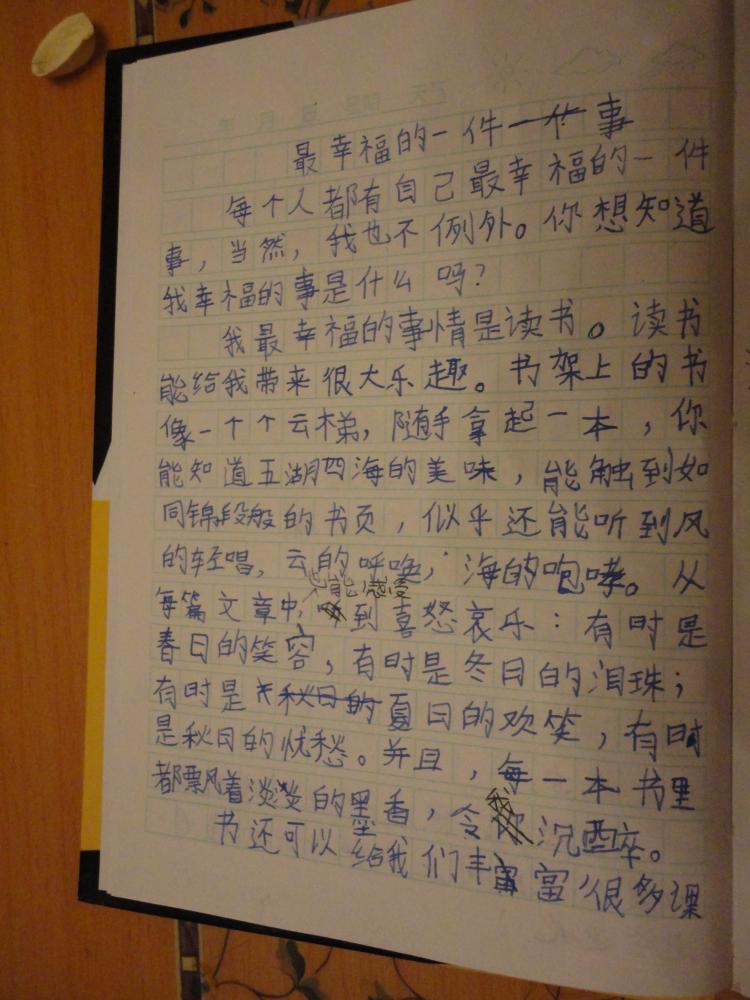 最幸福的一件事
每个人都有自己最幸福的一件
事，当然，我也不例外。你想知道
我幸福的事是什么吗？
我最幸福的事情是读书。读书
能给我带来很大乐趣。书架上的书
像一个个云梯，随手拿起一本，你
能知道五湖四海的美味，能触到如
同锦段般的书页，似乎还能听到风
的轻唱，云的呼唤，海的咆哮。从
也能感受
每篇文章中，到喜怒哀乐：有时是
春日的笑容，有时是冬日的泪珠；
有时是夏日的欢笑，有时
是秋日的忧愁。并且，每一本书里
都飘着淡淡的墨香，令沉醉。
书还可以给我们丰富很多课